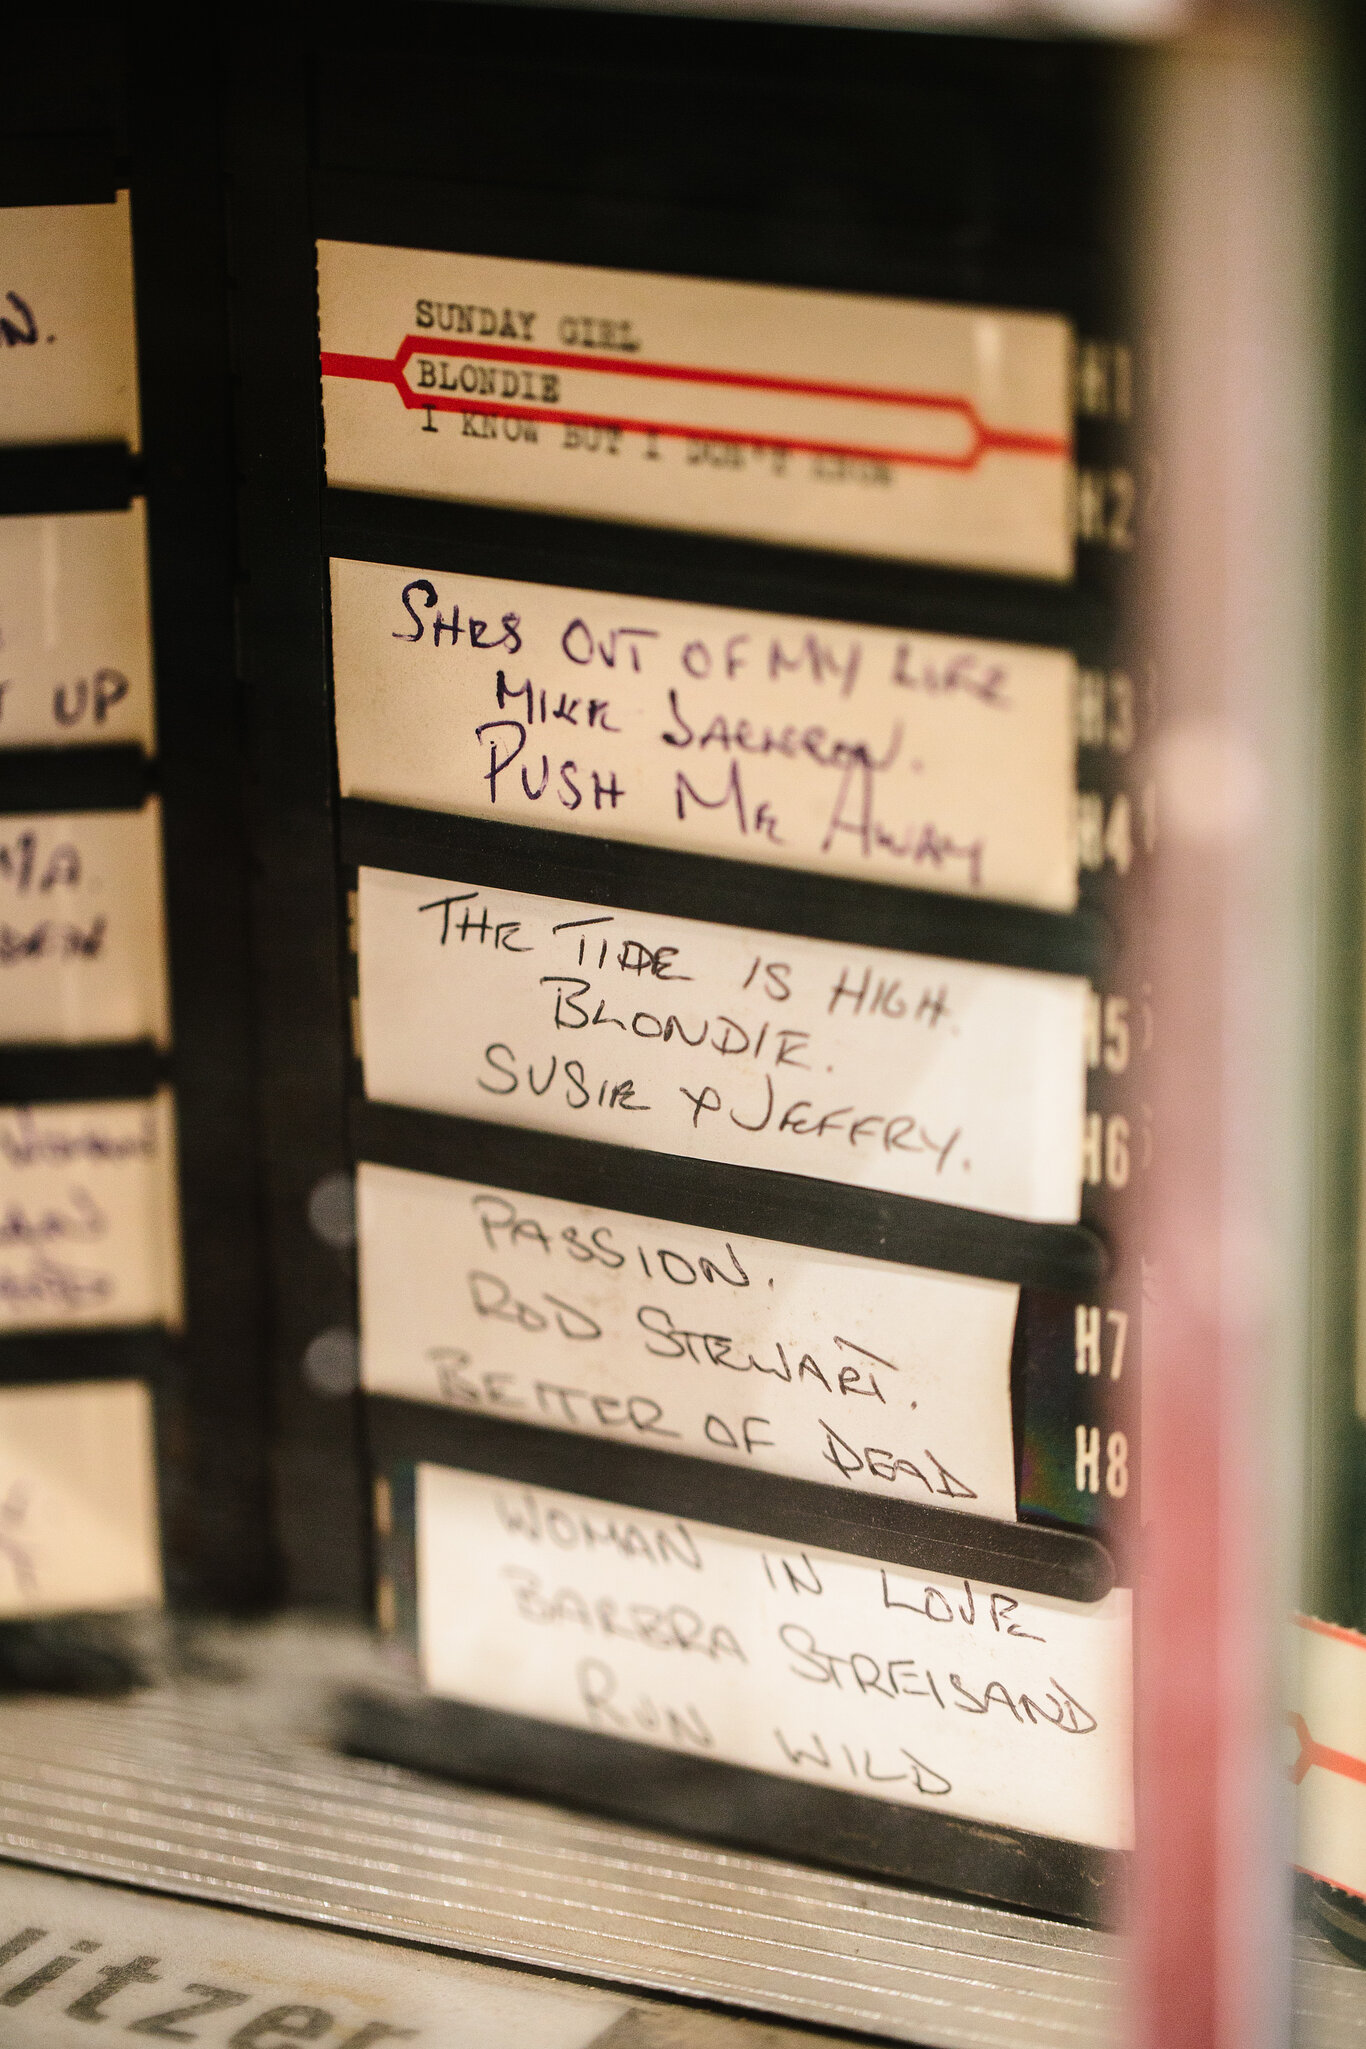 N.
UP
SUNDAY GIRL
BLONDIE
I KNOW BUT I DON'T KNOW
H1
H2
SHES OUT OF MY LIFE
MIKE JACKSON.
PUSH ME AWAY
H3
H4
THE TIDE IS HIGH.
BLONDIE.
SUSIE & JEFFRY.
H5
H6
PASSION.
ROD STEWART.
BETTER OF DEAD
H7
H8
WOMAN IN LOVE
BARBRA STREISAND
RUN WILD
litzer